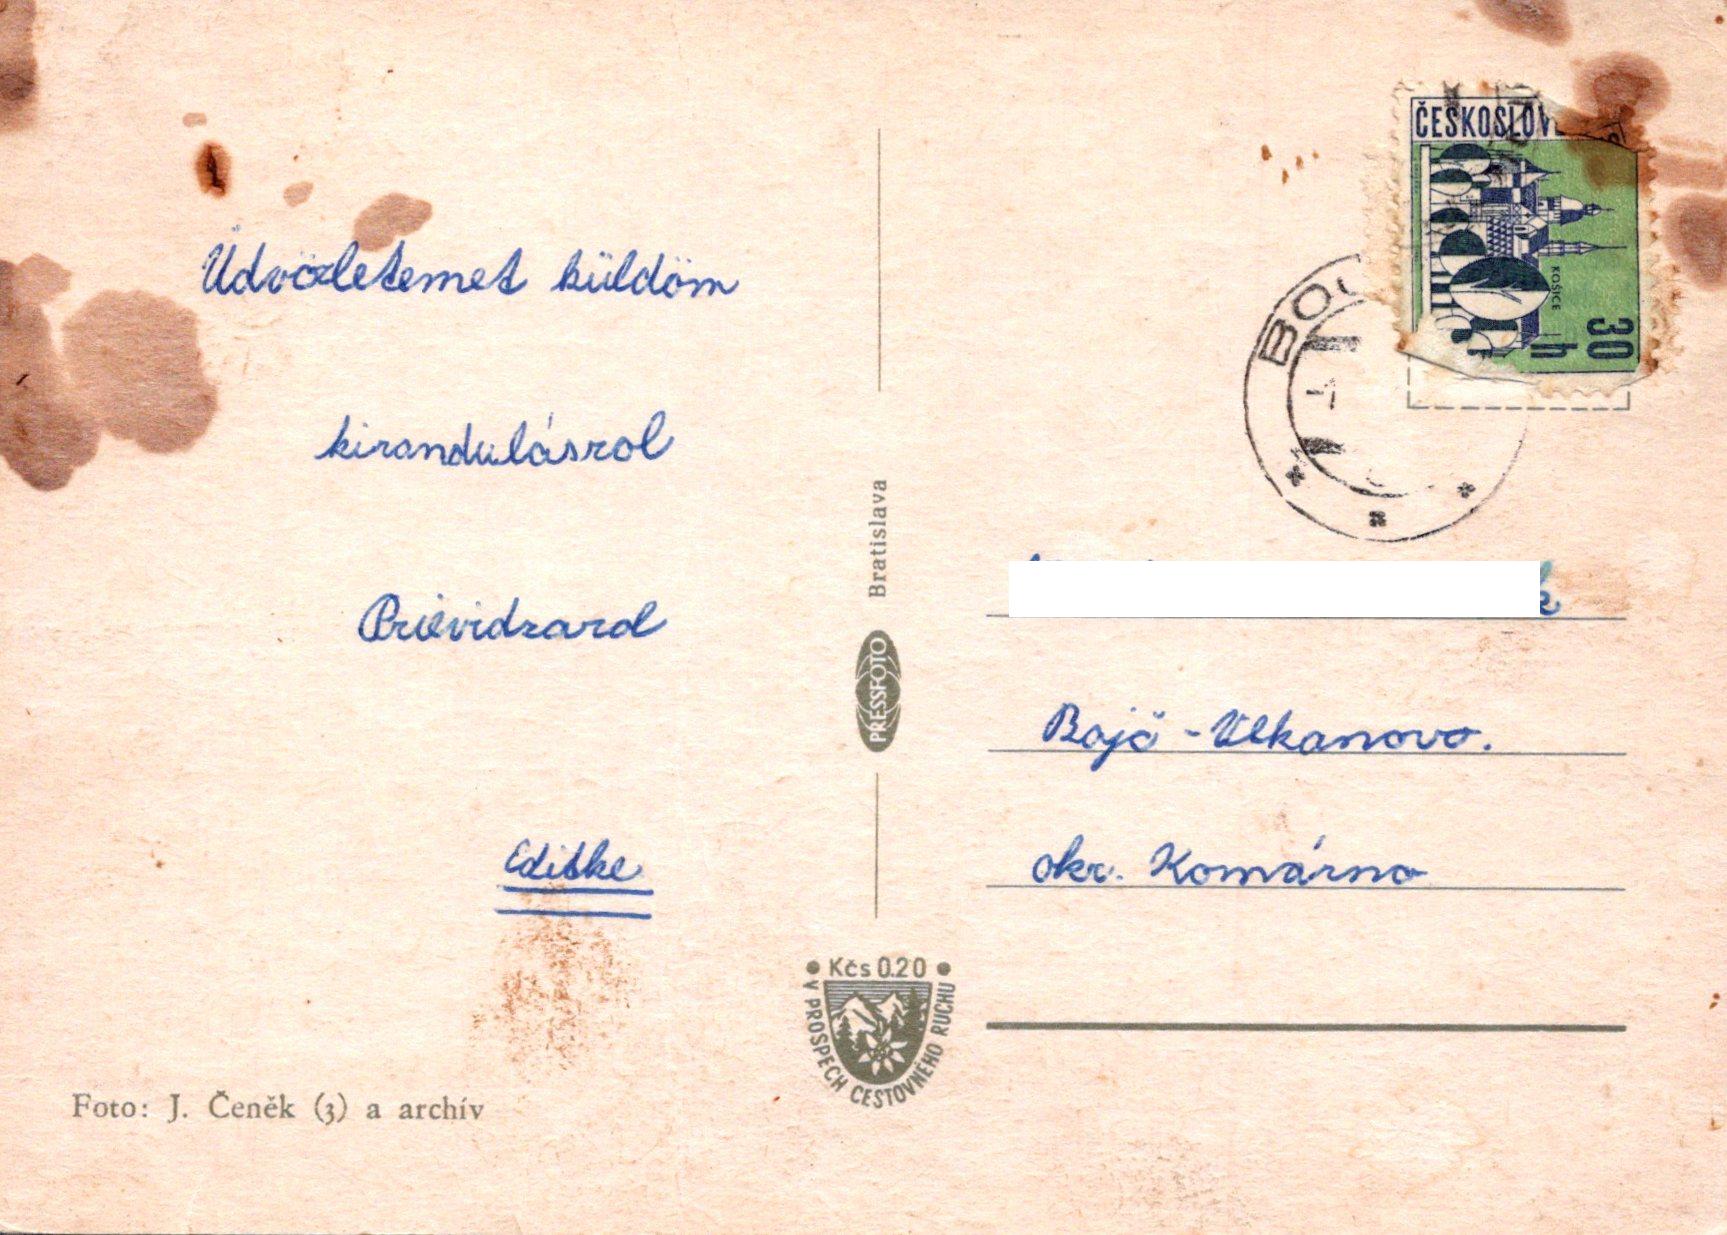 Üdvözletemet küldöm
kirandulásrol
Prievidzarol
Editke
Foto: J. Čeněk (3) a archív
Bratislava
PRESSFOTO
Kčs 0.20
V PROSPECH CESTOVNÉHO RUCHU
ČESKOSLOV
KOŠICE
30
h
BO
Bajč - Vlkanovo.
okr. Komárno